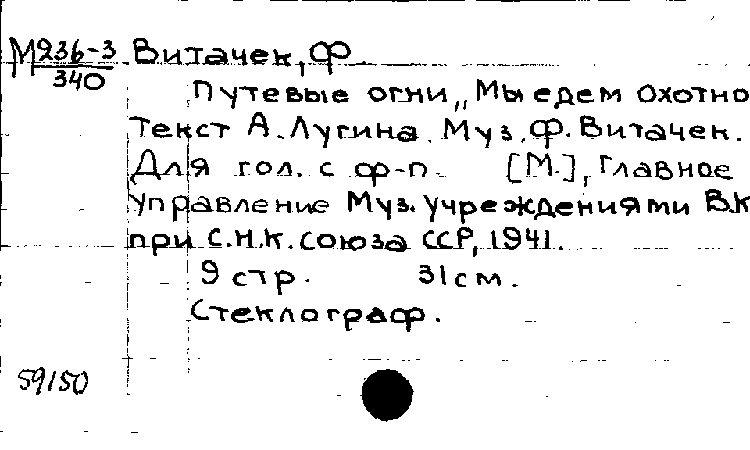 М236-3 Витачек, Ф
340
Путевые огни „Мы едем охотно
Текст А. Лугина. Муз. Ф. Витачек.
Для гол. с ф-п. [М.], Главное
управление Муз. учреждениями В.К
при С.Н.К. Союза ССР, 1941.
9 стр. 31 см.
Стеклограф.
59150